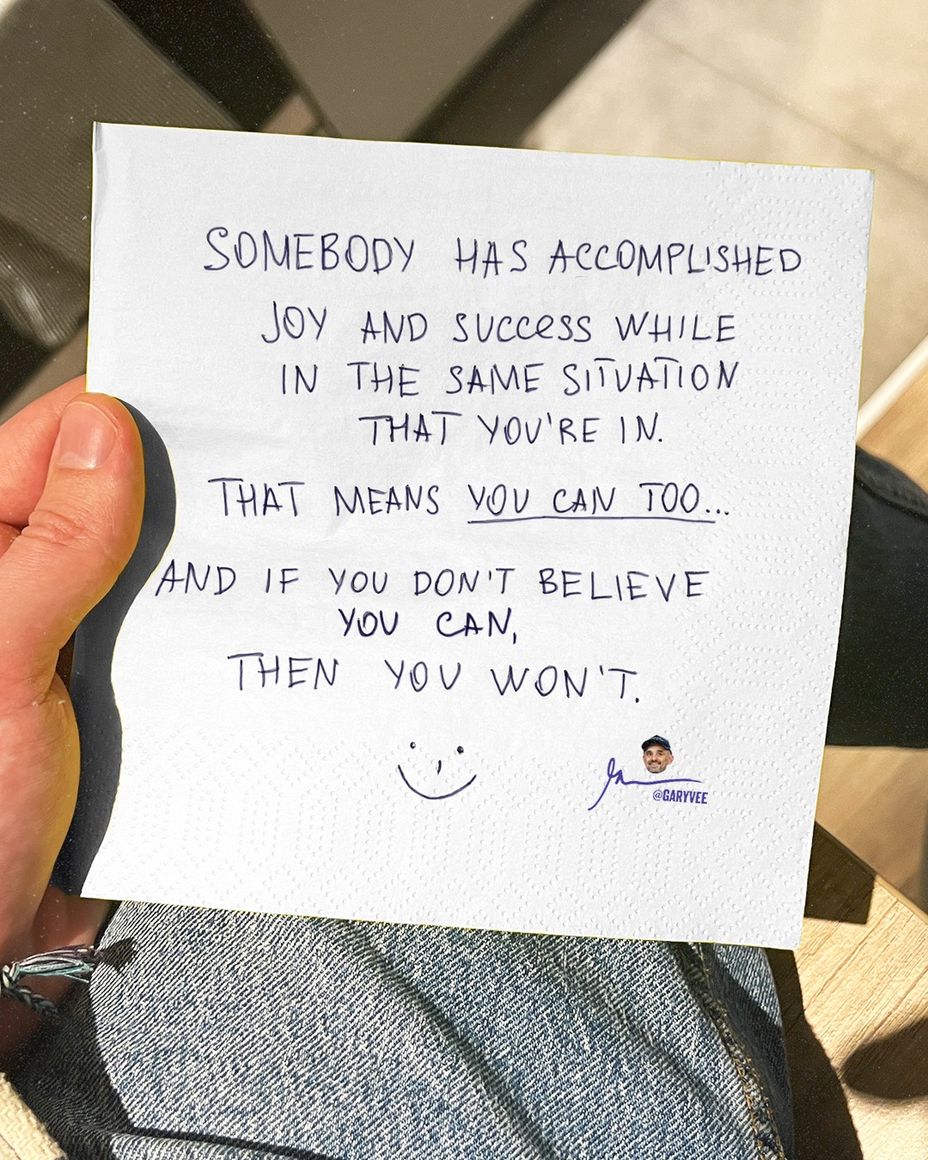 SOMEBODY HAS ACCOMPLISHED
JOY AND SUCCESS WHILE
IN THE SAME SITUATION
THAT YOU'RE IN.
THAT MEANS YOU CAN TOO...
AND IF YOU DON'T BELIEVE
YOU CAN,
THEN YOU WON'T.
@GARYVEE